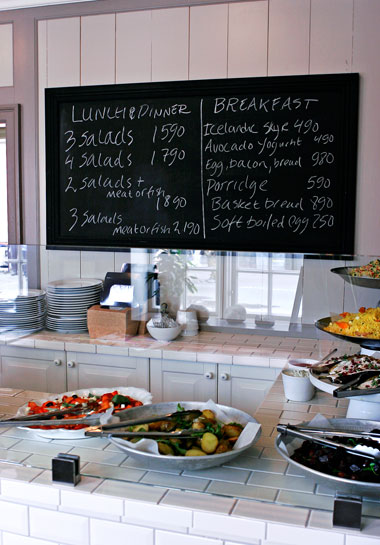 LUNCH & DINNER
3 salads 1590
4 salads 1790
2 salads +
meat or fish
1890
3 salads
meat or fish 2.190
BREAKFAST
Icelandic style 490
Avocado yogurt 490
Egg, bacon, bread 980
Porridge 590
Basket bread 890
Soft boiled egg 250